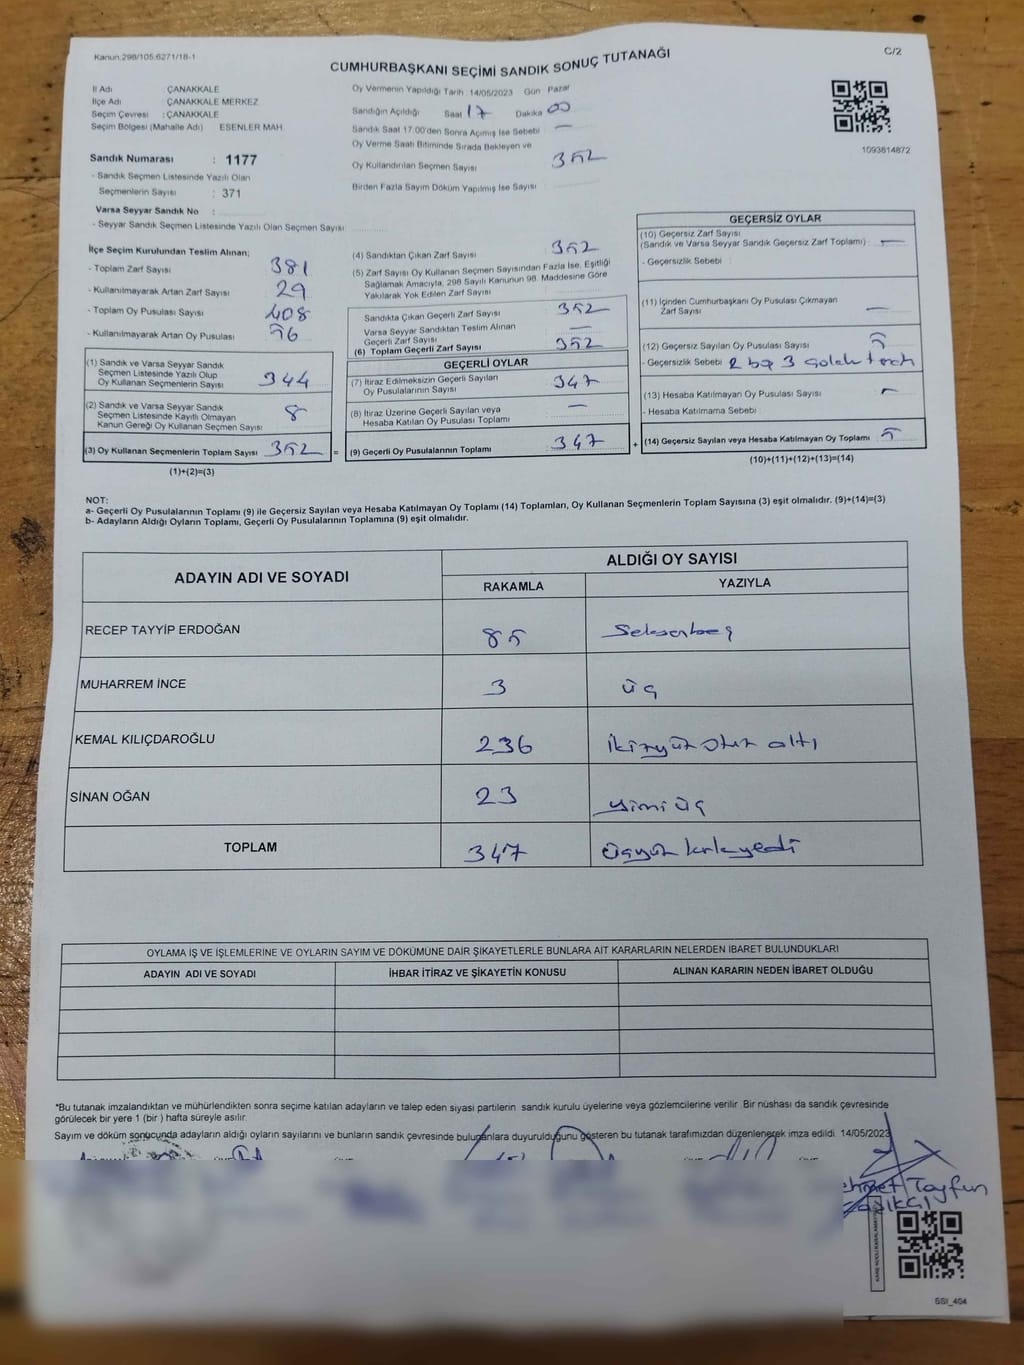 Kanun:298/105.6271/18-1
C/2
CUMHURBAŞKANI SEÇİMİ SANDIK SONUÇ TUTANAĞI
İl Adı : ÇANAKKALE
İlçe Adı : ÇANAKKALE MERKEZ
Seçim Çevresi : ÇANAKKALE
Seçim Bölgesi (Mahalle Adı) ESENLER MAH.
Sandık Numarası : 1177
- Sandık Seçmen Listesinde Yazılı Olan
Seçmenlerin Sayısı : 371
Varsa Seyyar Sandık No :
- Seyyar Sandık Seçmen Listesinde Yazılı Olan Seçmen Sayısı:
Oy Vermenin Yapıldığı Tarih :14/05/2023 Gün : Pazar
Sandığın Açıldığı Saat 17 Dakika 00
Sandık Saat 17.00'den Sonra Açımış İse Sebebi : —
Oy Verme Saati Bitiminde Sırada Bekleyen ve
Oy Kullandırılan Seçmen Sayısı 352
Birden Fazla Sayım Döküm Yapılmış İse Sayısı :
1093814872
İlçe Seçim Kurulundan Teslim Alınan;
- Toplam Zarf Sayısı 381
- Kullanılmayarak Artan Zarf Sayısı : 29
- Toplam Oy Pusulası Sayısı : 408
- Kullanılmayarak Artan Oy Pusulası : 56
(1) Sandık ve Varsa Seyyar Sandık
Seçmen Listesinde Yazılı Olup
Oy Kullanan Seçmenlerin Sayısı : 344
(2) Sandık ve Varsa Seyyar Sandık
Seçmen Listesinde Kayıtlı Olmayan
Kanun Gereği Oy Kullanan Seçmen Sayısı : 8
(3) Oy Kullanan Seçmenlerin Toplam Sayısı : 352
(1)+(2)=(3)
(4) Sandıktan Çıkan Zarf Sayısı : 352
(5) Zarf Sayısı Oy Kullanan Seçmen Sayısından Fazla İse, Eşitliği
Sağlamak Amacıyla, 298 Sayılı Kanunun 98. Maddesine Göre
Yakılarak Yok Edilen Zarf Sayısı :
Sandıkta Çıkan Geçerli Zarf Sayısı : 352
Varsa Seyyar Sandıktan Teslim Alınan
Geçerli Zarf Sayısı : —
(6) Toplam Geçerli Zarf Sayısı : 352
GEÇERLİ OYLAR
(7) İtiraz Edilmeksizin Geçerli Sayılan
Oy Pusulalarının Sayısı : 347
(8) İtiraz Üzerine Geçerli Sayılan veya
Hesaba Katılan Oy Pusulası Toplamı : —
= (9) Geçerli Oy Pusulalarının Toplamı : 347
GEÇERSİZ OYLAR
(10) Geçersiz Zarf Sayısı
(Sandık ve Varsa Seyyar Sandık Geçersiz Zarf Toplamı) : —
- Geçersizlik Sebebi :
(11) İçinden Cumhurbaşkanı Oy Pusulası Çıkmayan
Zarf Sayısı : —
(12) Geçersiz Sayılan Oy Pusulası Sayısı : 5
- Geçersizlik Sebebi : 2 boş 3
(13) Hesaba Katılmayan Oy Pusulası Sayısı : —
- Hesaba Katılmama Sebebi :
+ (14) Geçersiz Sayılan veya Hesaba Katılmayan Oy Toplamı : 5
(10)+(11)+(12)+(13)=(14)
NOT:
a- Geçerli Oy Pusulalarının Toplamı (9) ile Geçersiz Sayılan veya Hesaba Katılmayan Oy Toplamı (14) Toplamları, Oy Kullanan Seçmenlerin Toplam Sayısına (3) eşit olmalıdır. (9)+(14)=(3)
b- Adayların Aldığı Oyların Toplamı, Geçerli Oy Pusulalarının Toplamına (9) eşit olmalıdır.
ADAYIN ADI VE SOYADI
ALDIĞI OY SAYISI
RAKAMLA YAZIYLA
RECEP TAYYİP ERDOĞAN 85 Seksenbeş
MUHARREM İNCE 3 üç
KEMAL KILIÇDAROĞLU 236 ikiyüz otuz altı
SİNAN OĞAN 23 yirmi üç
TOPLAM 347 üçyüz kırkyedi
OYLAMA İŞ VE İŞLEMLERİNE VE OYLARIN SAYIM VE DÖKÜMÜNE DAİR ŞİKAYETLERLE BUNLARA AİT KARARLARIN NELERDEN İBARET BULUNDUKLARI
ADAYIN ADI VE SOYADI İHBAR İTİRAZ VE ŞİKAYETİN KONUSU ALINAN KARARIN NEDEN İBARET OLDUĞU
*Bu tutanak imzalandıktan ve mühürlendikten sonra seçime katılan adayların ve talep eden siyasi partilerin sandık kurulu üyelerine veya gözlemcilerine verilir. Bir nüshası da sandık çevresinde
görülecek bir yere 1 (bir ) hafta süreyle asılır.
Sayım ve döküm sonucunda adayların aldığı oyların sayılarını ve bunların sandık çevresinde bulunanlara duyurulduğunu gösteren bu tutanak tarafımızdan düzenlenerek imza edildi. 14/05/2023
Tayfun
SSI_404